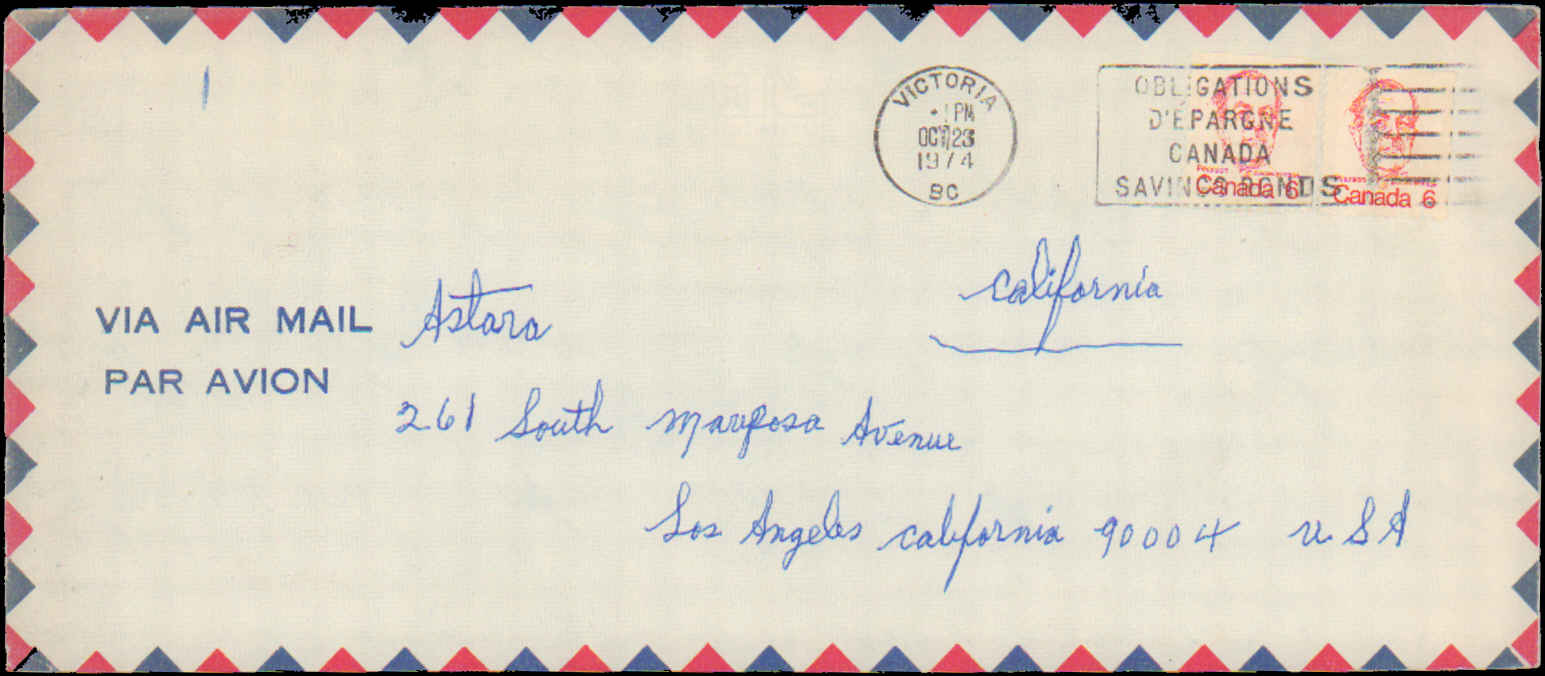 VICTORIA
-1 PM
OCT 23
1974
BC
OBLIGATIONS
D'ÉPARGNE
CANADA
SAVINGS BONDS
Canada 6
Canada 6
california
VIA AIR MAIL
PAR AVION
Astara
261 South Mariposa Avenue
Los Angeles california 90004 U S A